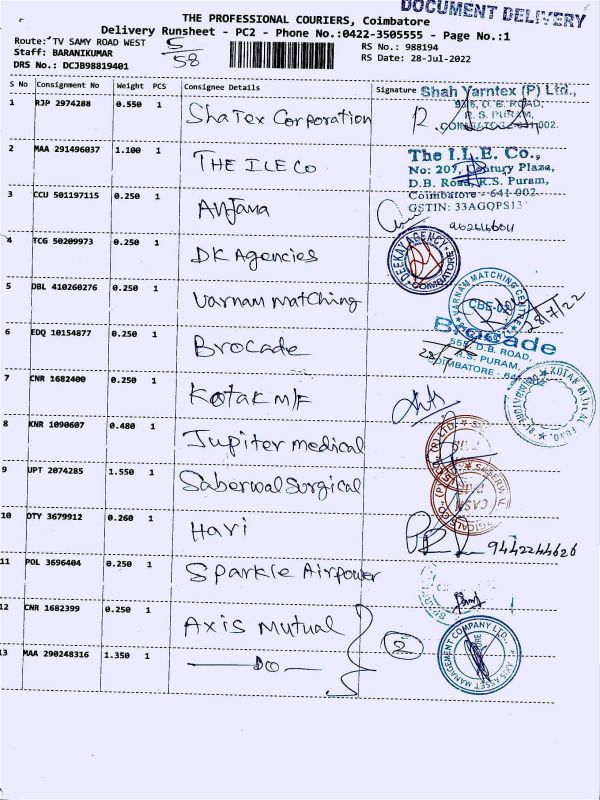 DOCUMENT DELIVERY
THE PROFESSIONAL COURIERS, Coimbatore
Delivery Runsheet - PC2 - Phone No.:0422-3505555 - Page No.:1
Route: TV SAMY ROAD WEST 5/58 RS No.: 988194
Staff: BARANIKUMAR RS Date: 28-Jul-2022
DRS No.: DCJB98819401
S No Consignment No Weight PCS Consignee Details Signature
1 RJP 2974288 0.550 1 Shatex Corporation
Shah Yarntex (P) Ltd.,
R. S. PURAM,
2 MAA 291496037 1.100 1 THE ILE CO
The I.L.E. Co.,
No: 207, Century Plaza,
D.B. Road, R.S. Puram,
Coimbatore - 641 002.
GSTIN: 33AGQPS13
3 CCU 501197115 0.250 1 Anjana
4 TCG 50209973 0.250 1 DK Agencies
DEEKAY AGENCY COIMBATORE
5 DBL 410260276 0.250 1 Varnam Matching
VARNAM MATCHING CENTRE
CBE-02
28/7/22
6 EDQ 10154877 0.250 1 Brocade
Brocade
555, D.B. ROAD,
R.S. PURAM,
COIMBATORE - 641
7 CNR 1682400 0.250 1 Kotak M/F
KOTAK MUTUAL FUND
8 KNR 1090607 0.480 1 Jupiter medical
9 UPT 2074285 1.550 1 Saberwal Surgical
CASH
10 DTY 3679912 0.260 1 Hari
9442244626
11 POL 3696404 0.250 1 Sparkle Airpower
12 CNR 1682399 0.250 1 Axis Mutual
2
13 MAA 290248316 1.350 1 DO
AXIS ASSET MANAGEMENT COMPANY LTD.